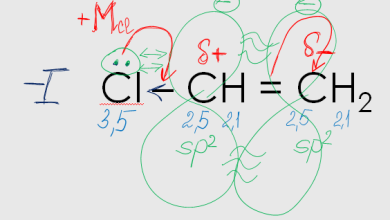 +M cl
δ+ δ-
-I Cl ← CH = CH₂
3,5 2,5 2,1 2,5 2,1
sp² sp²